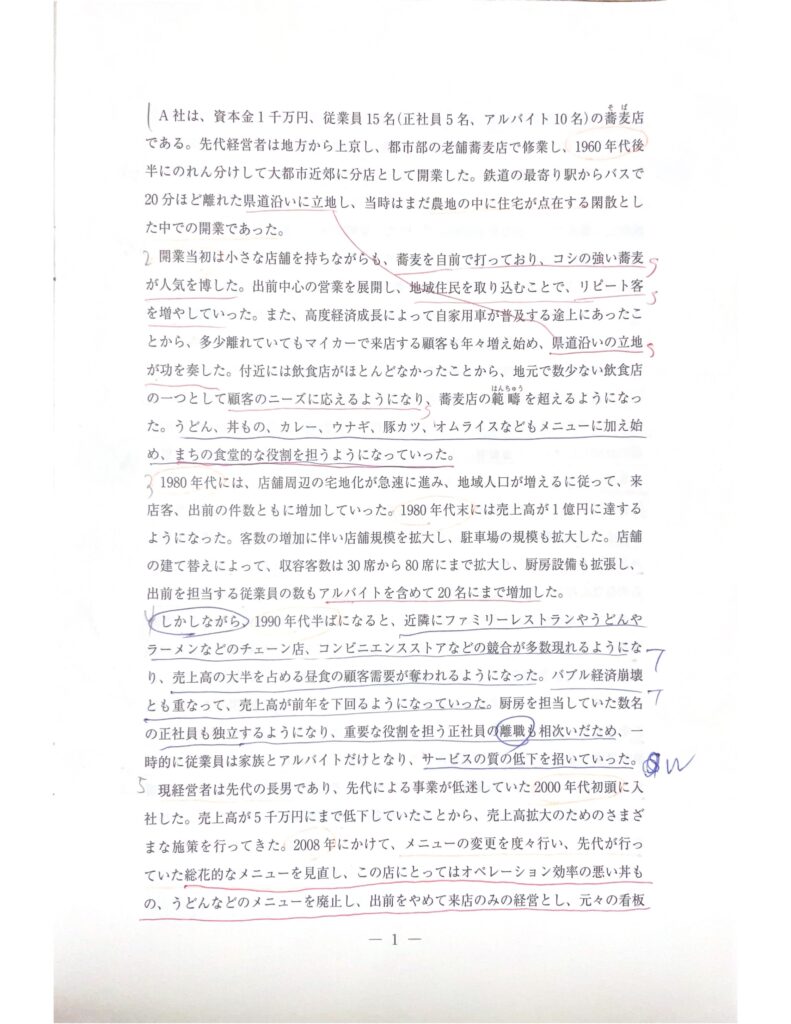 1 A社は、資本金1千万円、従業員15名(正社員5名、アルバイト10名)の蕎麦店
そば
である。先代経営者は地方から上京し、都市部の老舗蕎麦店で修業し、1960年代後
半にのれん分けして大都市近郊に分店として開業した。鉄道の最寄り駅からバスで
20分ほど離れた県道沿いに立地し、当時はまだ農地の中に住宅が点在する閑散とし
た中での開業であった。
2 開業当初は小さな店舗を持ちながらも、蕎麦を自前で打っており、コシの強い蕎麦 S
が人気を博した。出前中心の営業を展開し、地域住民を取り込むことで、リピート客 S
を増やしていった。また、高度経済成長によって自家用車が普及する途上にあったこ
とから、多少離れていてもマイカーで来店する顧客も年々増え始め、県道沿いの立地 S
が功を奏した。付近には飲食店がほとんどなかったことから、地元で数少ない飲食店
の一つとして顧客のニーズに応えるようになり、蕎麦店の範疇を超えるようになっ
はんちゅう
S
た。うどん、丼もの、カレー、ウナギ、豚カツ、オムライスなどもメニューに加え始
め、まちの食堂的な役割を担うようになっていった。
3 1980年代には、店舗周辺の宅地化が急速に進み、地域人口が増えるに従って、来
店客、出前の件数ともに増加していった。1980年代末には売上高が1億円に達する
ようになった。客数の増加に伴い店舗規模を拡大し、駐車場の規模も拡大した。店舗
の建て替えによって、収容客数は30席から80席にまで拡大し、厨房設備も拡張し、
出前を担当する従業員の数もアルバイトを含めて20名にまで増加した。
4 しかしながら、1990年代半ばになると、近隣にファミリーレストランやうどんや
ラーメンなどのチェーン店、コンビニエンスストアなどの競合が多数現れるようにな
り、売上高の大半を占める昼食の顧客需要が奪われるようになった。バブル経済崩壊 T
とも重なって、売上高が前年を下回るようになっていった。厨房を担当していた数名 T
の正社員も独立するようになり、重要な役割を担う正社員の離職も相次いだため、一
時的に従業員は家族とアルバイトだけとなり、サービスの質の低下を招いていった。 W
5 現経営者は先代の長男であり、先代による事業が低迷していた2000年代初頭に入
社した。売上高が5千万円にまで低下していたことから、売上高拡大のためのさまざ
まな施策を行ってきた。2008年にかけて、メニューの変更を度々行い、先代が行っ
ていた総花的なメニューを見直し、この店にとってはオペレーション効率の悪い丼も
の、うどんなどのメニューを廃止し、出前をやめて来店のみの経営とし、元々の看板
— 1 —